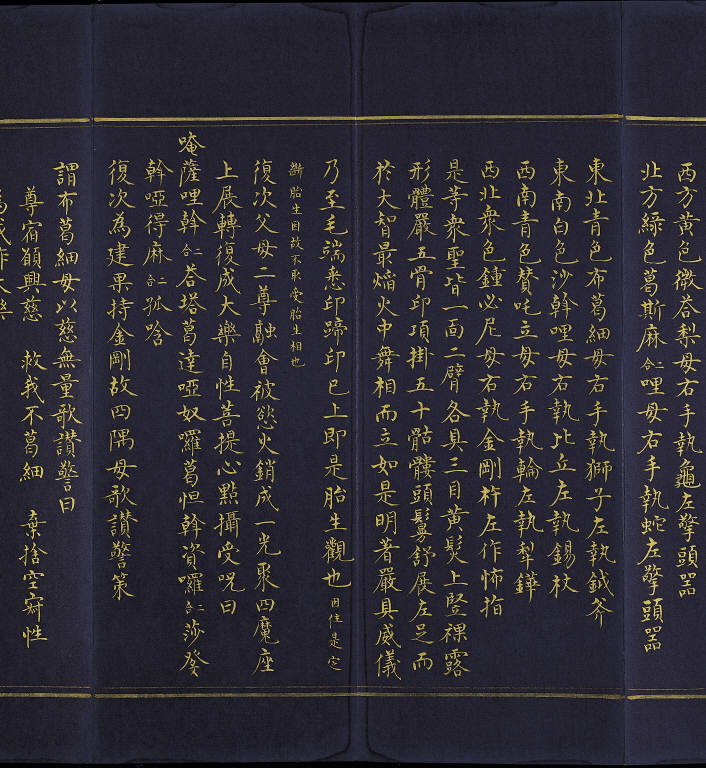 西方黄色微荅梨母右手執龜左擎頭器
北方綠色葛斯麻合二哩母右手執蛇左擎頭器
東北青色布葛細母右手執獅子左執鉞斧
東南白色沙斡哩母右執比丘左執錫杖
西南青色賛吒立母右手執輪左執犁鏵
西北衆色鍾必尼母右執金剛杵左作怖指
是等衆聖皆一面二臂各具三目黄髮上竪裸露
形體嚴五骨印項掛五十骷髏頭鬘舒展左足而
於大智最熖火中舞相而立如是明著嚴具威儀
乃至毛端悉印蹄印已上即是胎生觀也因住是定
斷胎生目故不取受胎生相也
復次父母二尊融會被慾火銷成一光聚四魔座
上展轉復成大樂自性菩提心點攝受呪曰
唵薩哩斡合二荅塔葛達啞奴囉葛怛斡資囉合二莎發
斡啞得麻合二孤唅
復次為建果持金剛故四隅母歌讃警策
謂布葛細母以慈無量歌讃警曰
尊宿願興慈 救我不葛細 棄捨空寂性